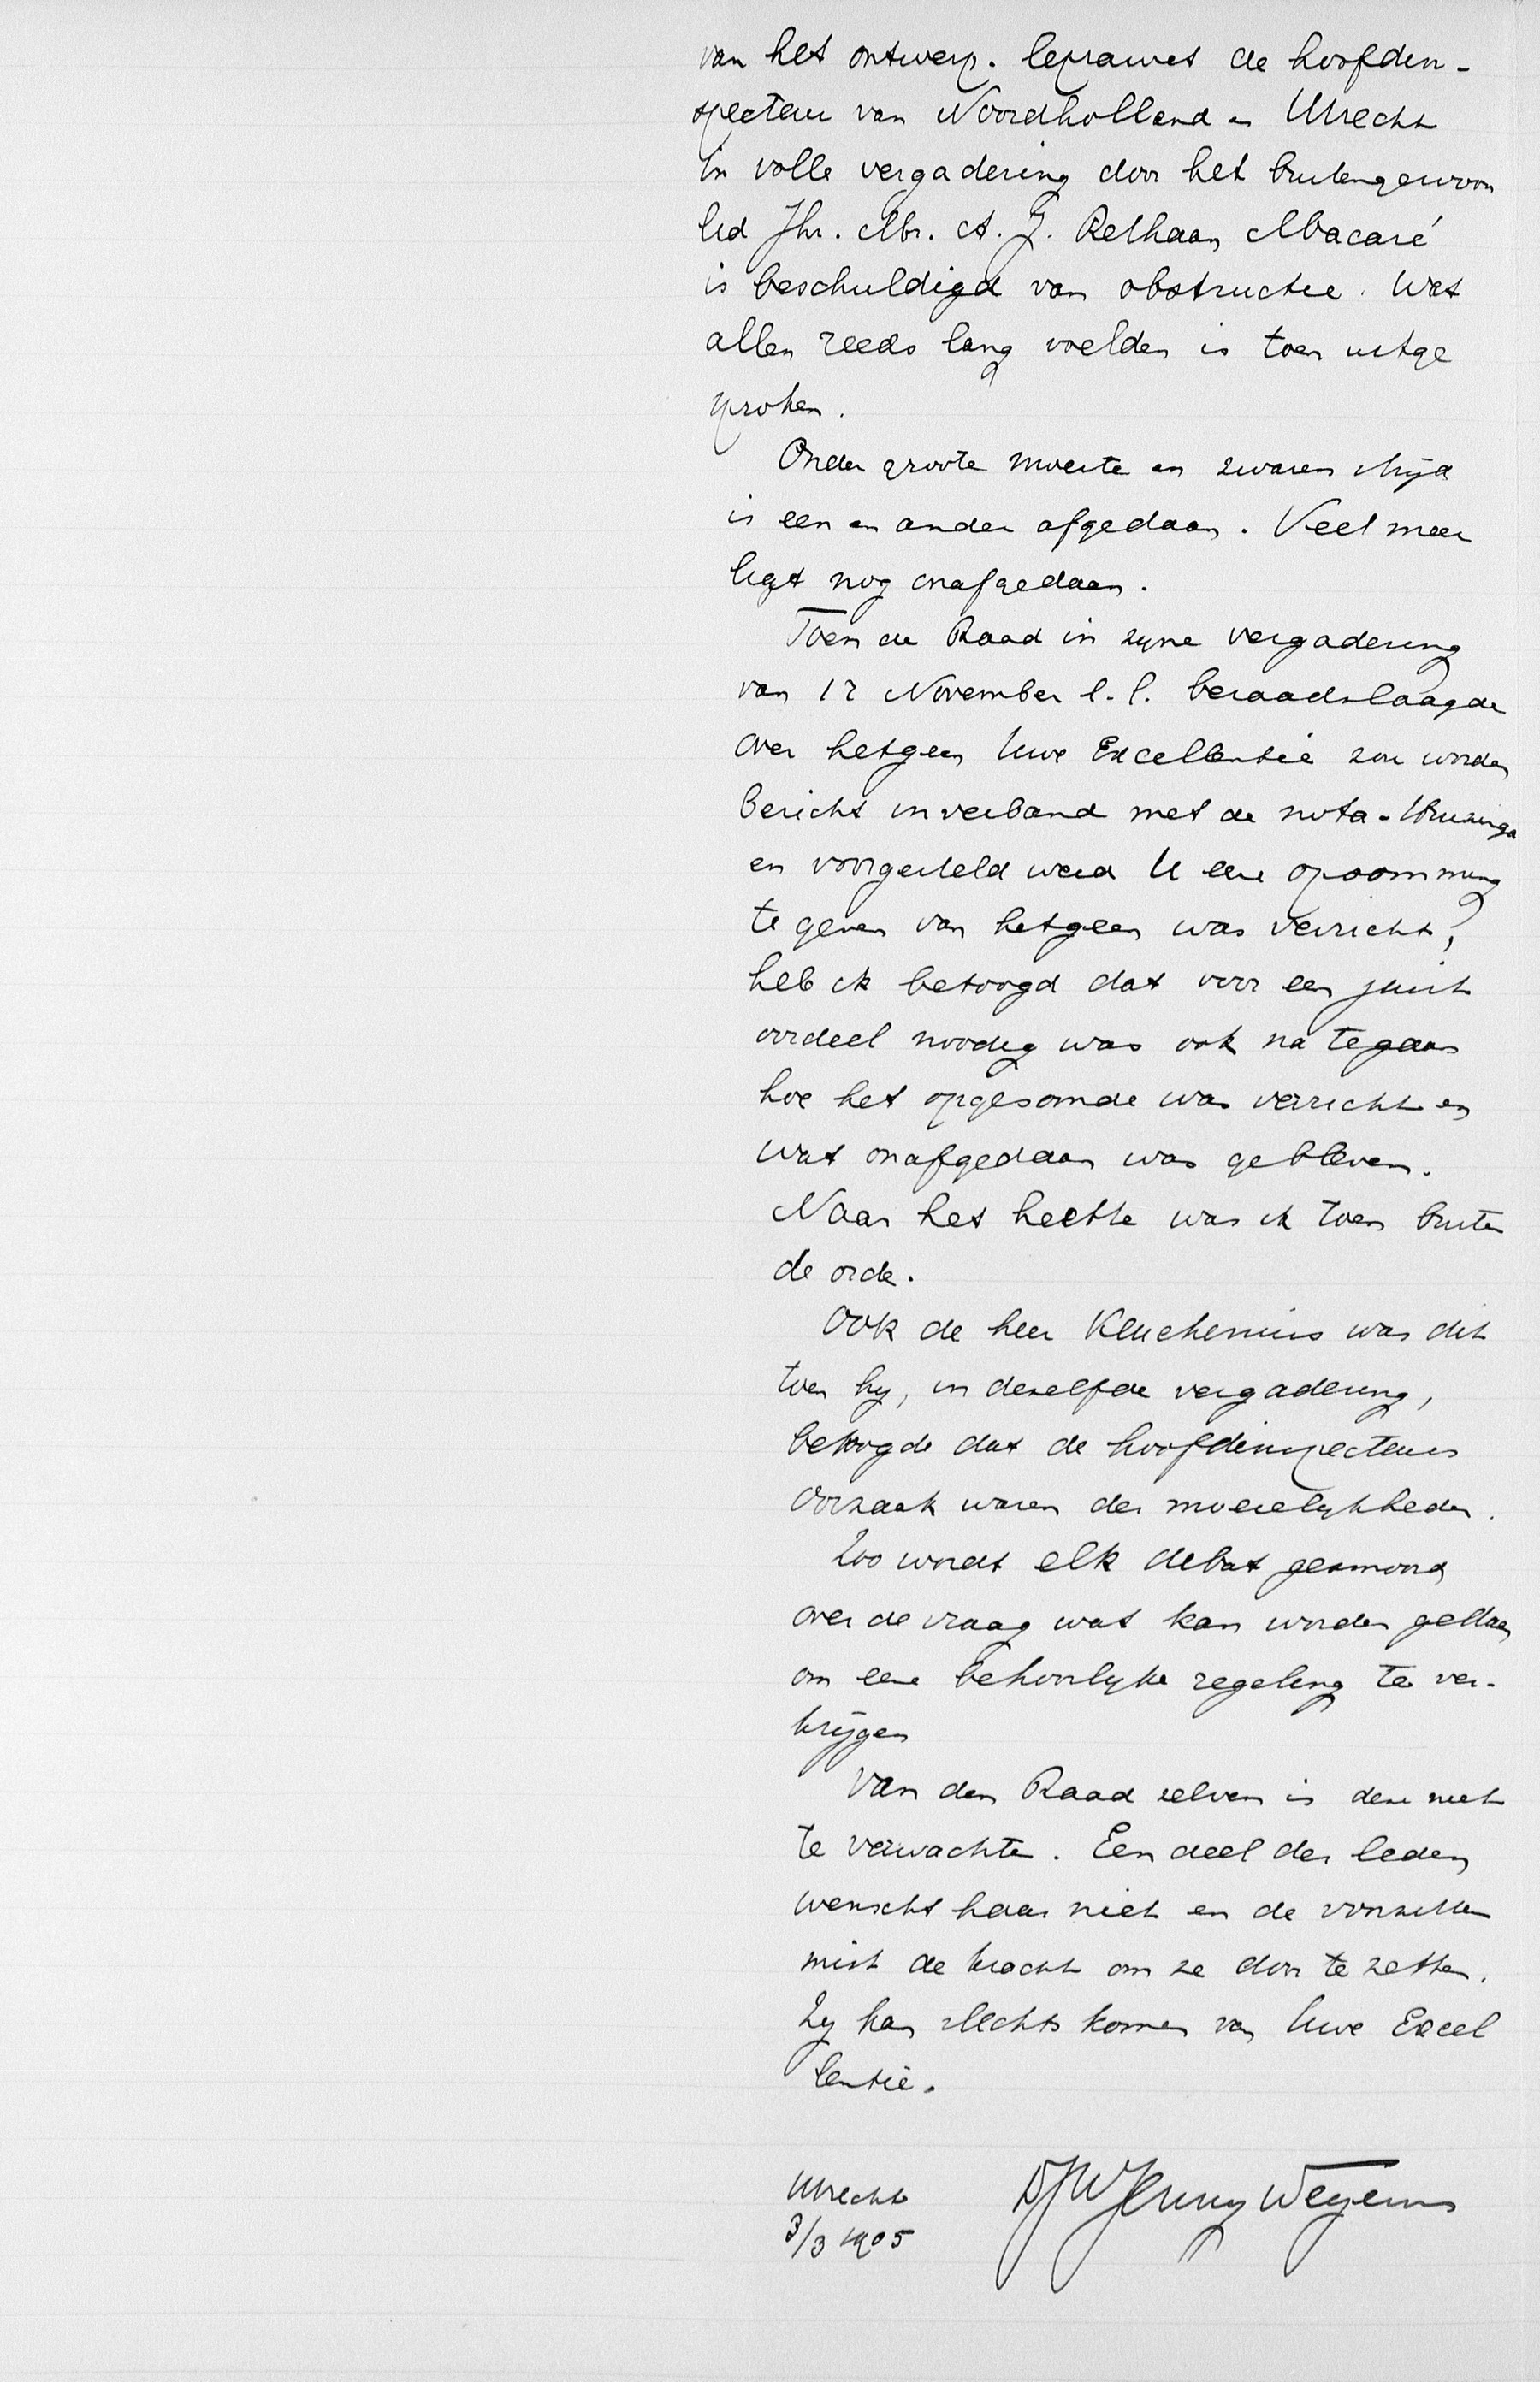 van het ontwerp. leprawet de hoofdin-
specteur van Noordholland en Utrecht
in volle vergadering door het buitengewoon
lid Jhr. Mr. A. J. Rethaan Macaré
is beschuldigd van obstructie. Wat
allen reeds lang voelden is toen uitge
sproken.
Onder groote moeite en zwaren strijd
is een en ander afgedaan. Veel meer
ligt nog onafgedaan.
Toen de Raad in zyne vergadering
van 12 November l.l. beraadslaagde
over hetgeen Uwe Excellentie zou worden
bericht in verband met de nota-Bruinsma
en voorgesteld werd U eene opsomming
te geven van hetgeen was verricht,
heb ik betoogd dat voor een juist
oordeel noodig was ook na te gaan
hoe het opgesomde was verricht en
wat onafgedaan was gebleven.
Naar het heette was ik toen buiten
de orde.
Ook de heer Keuchenius was dit
toen hy, in dezelfde vergadering,
betoogde dat de hoofdinspecteurs
oorzaak waren der moeielykheden.
Zoo wordt elk debat gesmoord
over de vraag wat kan worden gedaan
om eene behoorlyke regeling te ver-
krijgen
Van den Raad zelven is deze niet
te verwachten. Een deel der leden
wenscht haar niet en de voorzitter
mist de kracht om ze door te zetten.
Zy kan slechts komen van Uwe Excel
lentie.
Utrecht
3/3 1905
Dr J W Jenny Weyerman